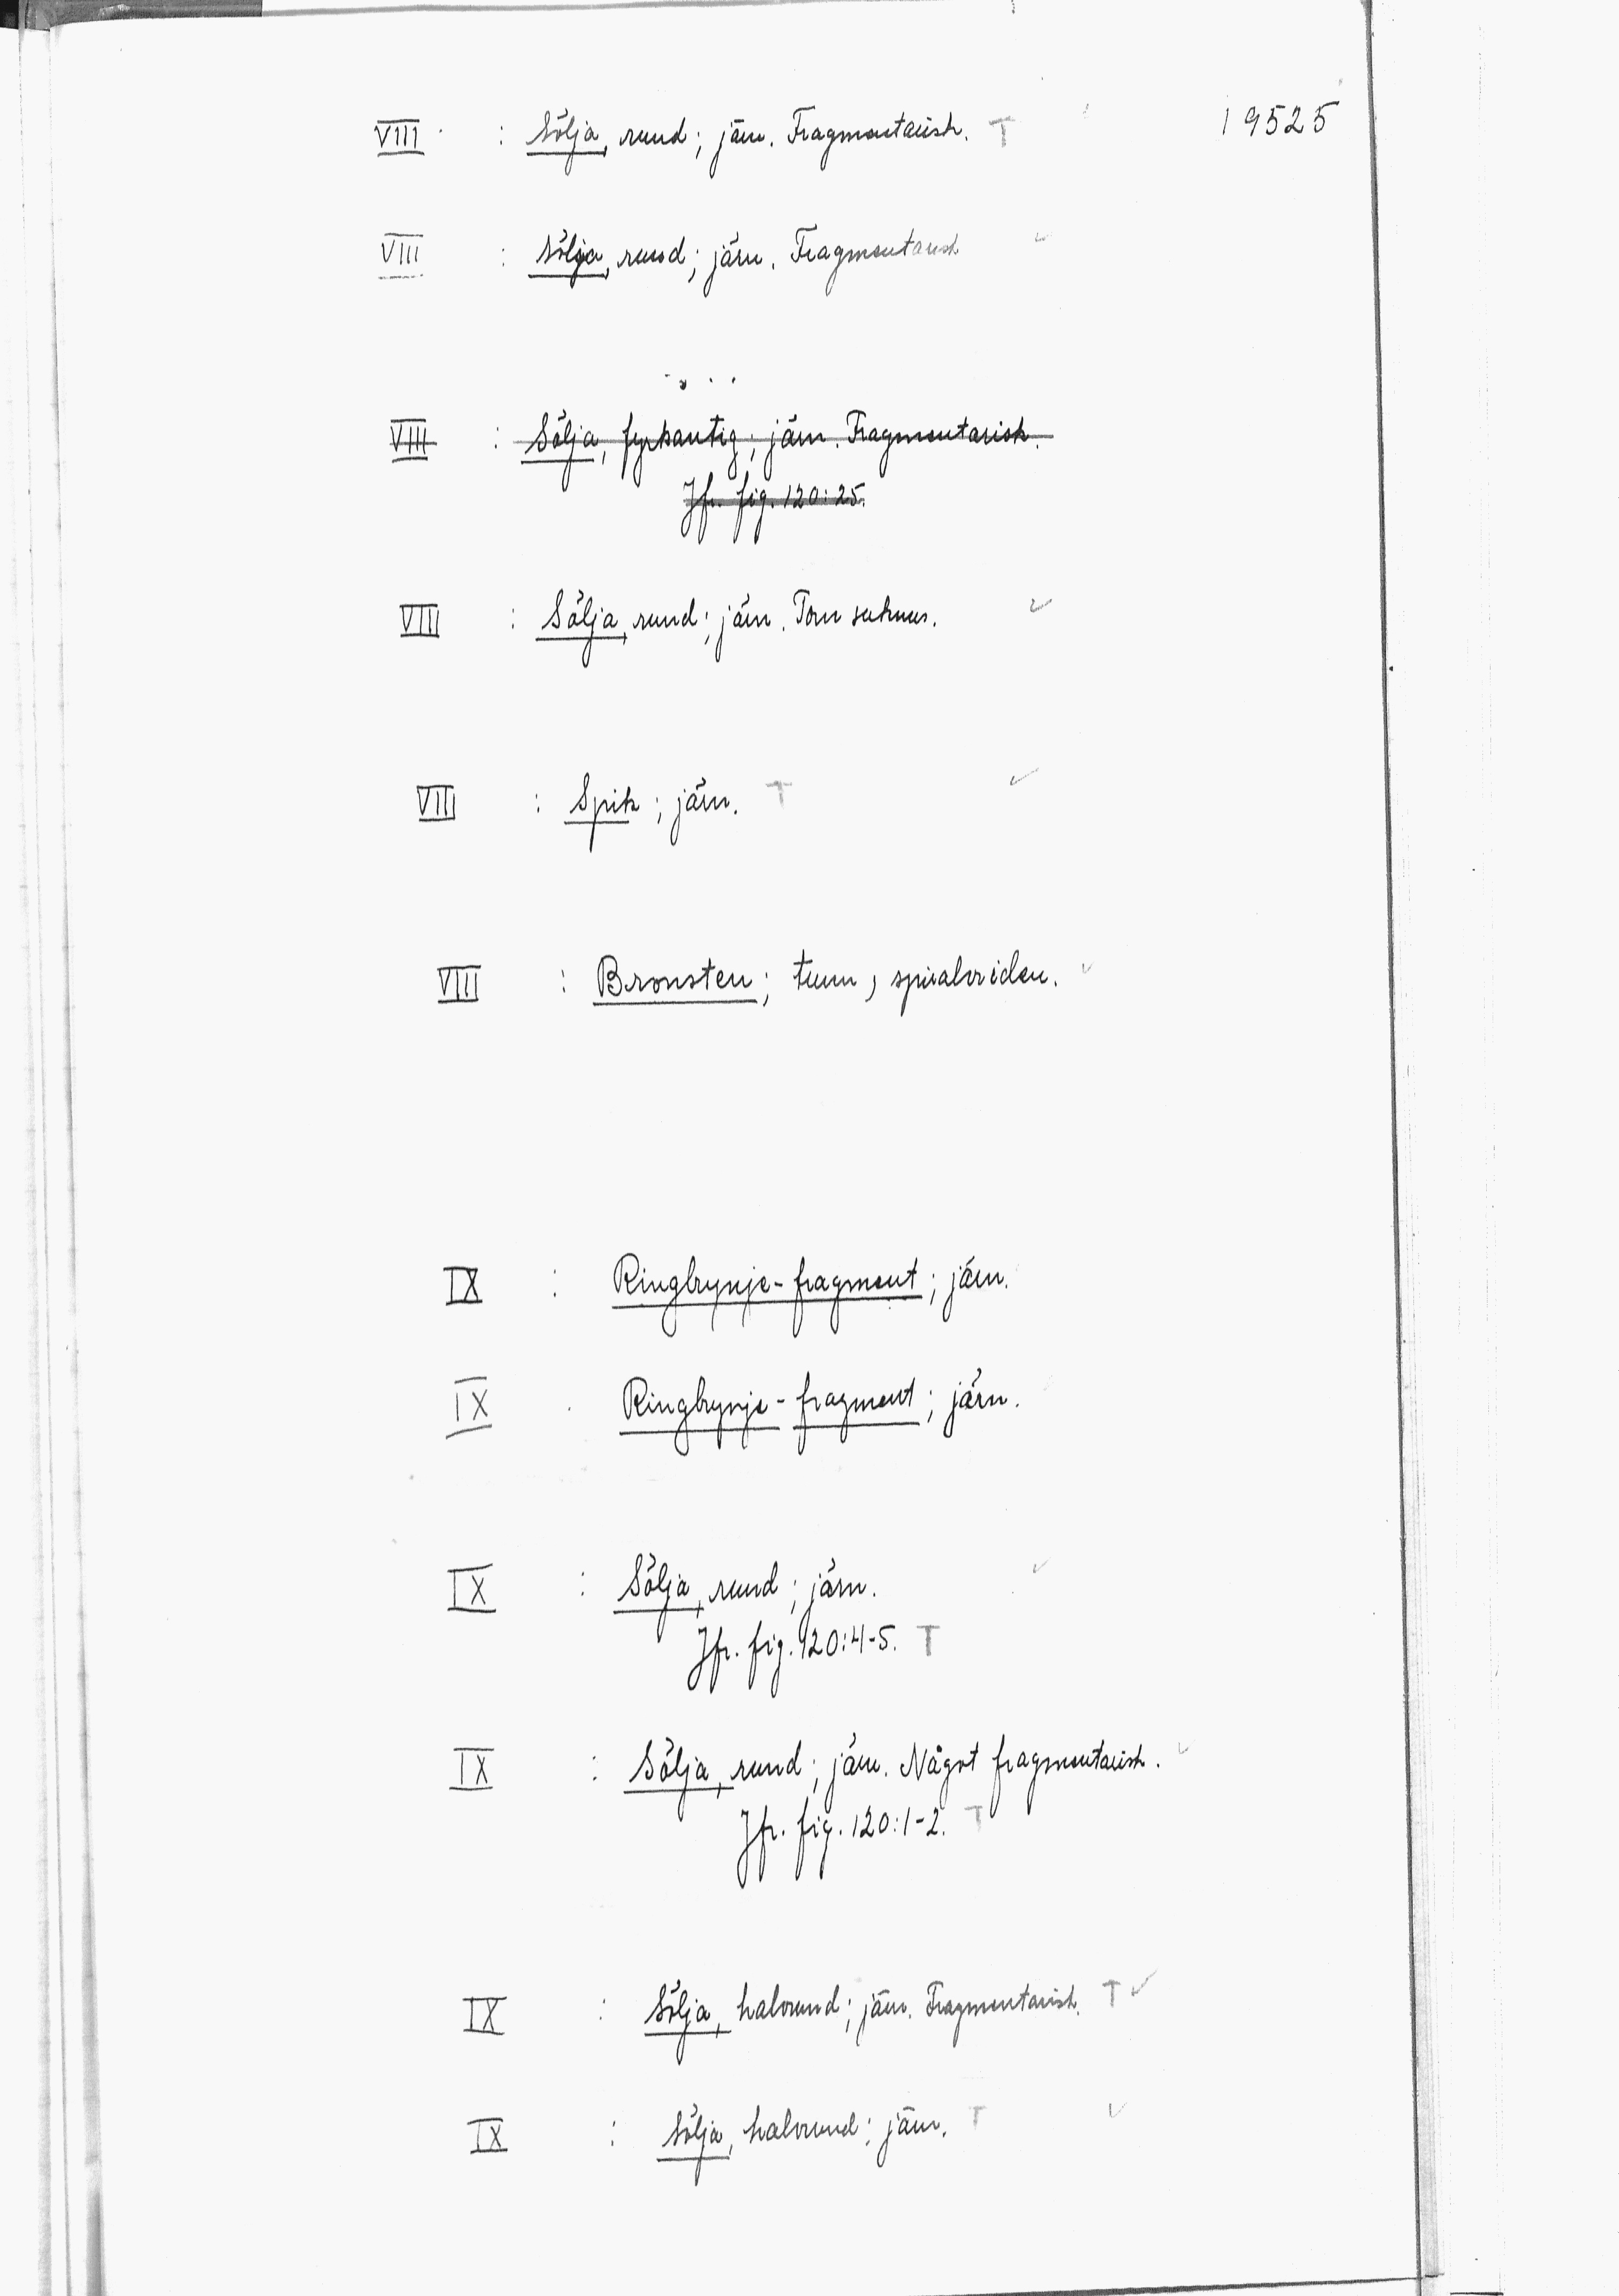 19525
VIII : Sölja, rund; järn. Fragmentarisk. T
VIII : Sölja, rund; järn. Fragmentarisk
VIII : Sölja, fyrkantig; järn. Fragmentarisk.
Jfr. fig. 120:25.
VIII : Sölja, rund; järn. Torn saknas. ✓
VIII : Spik; järn. T ✓
VIII : Bronsten; tunn, spiralvriden. ✓
IX : Ringbrynje-fragment; järn.
IX . Ringbrynje-fragment; järn.
IX : Sölja, rund; järn. ✓
Jfr. fig. 120:4-5. T
IX : Sölja, rund; järn. Något fragmentarisk. ✓
Jfr. fig. 120:1-2. T
IX : Sölja, halvrund; järn. Fragmentarisk. T ✓
IX : Sölja, halvrund; järn. T ✓